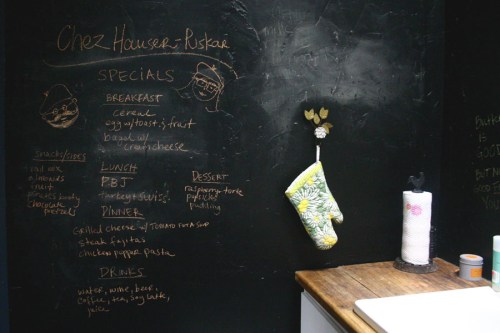 Chez Houser-Ruskar
SPECIALS
BREAKFAST
cereal
egg w/toast & fruit
bagel w/
cream cheese
Snacks/sides
almonds
fruit
chocolate
pretzel
LUNCH
PBJ
turkey + swiss
DESSERT
raspberry torte
pudding
DINNER
Grilled cheese w/ TOMATO soup
steak fajitas
chicken pepper pasta
DRINKS
water, wine, beer,
coffee, tea, soy latte,
juice